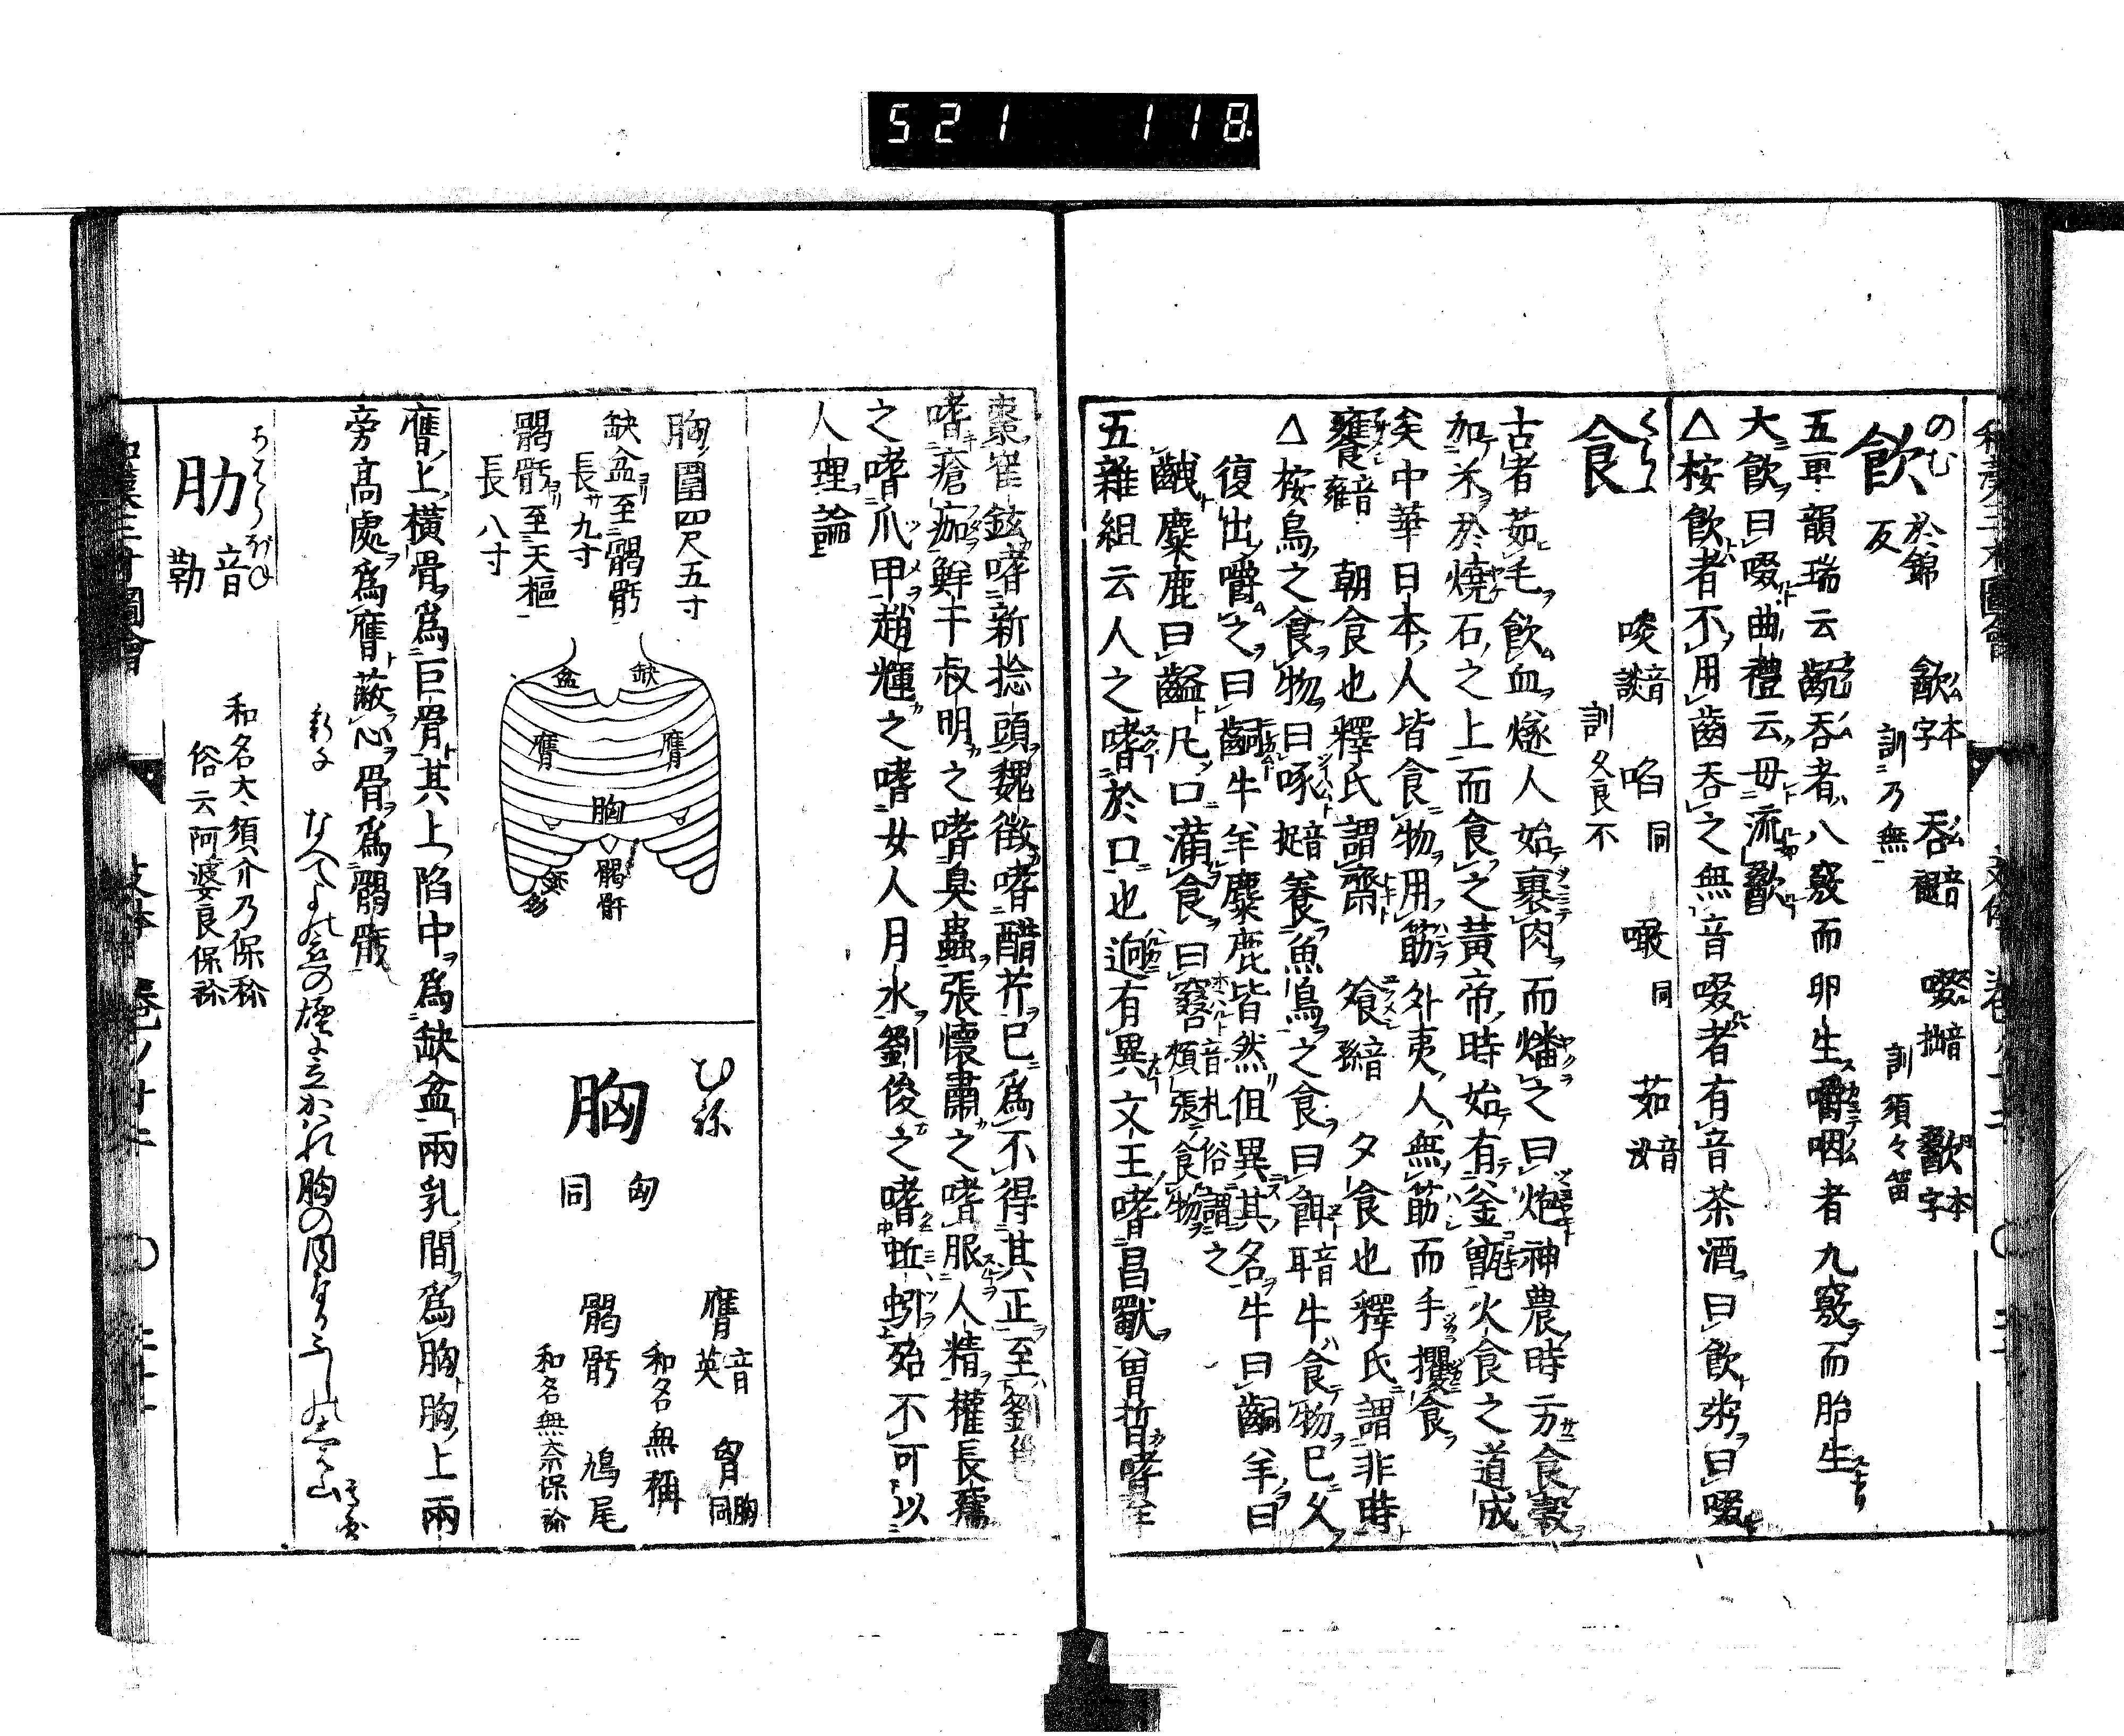 521 118
のむ
飲
於錦
反
㱃 本字
呑 音
啜 音拙
歠 本字
訓乃無
訓須々留
五車韻瑞云齕呑者八竅而卵生嚼咽者九竅而胎生
大飲曰啜曲禮云毋流歠
△桉飲者不用齒呑之無音啜者有音茶酒曰飲粥曰啜
くらふ
食
啖 音談
啗 同
噉 同
茹 音
訓久良不
古者茹毛飲血燧人始裹肉而燔之曰炮神農時方食穀
加米於燒石之上而食之黃帝時始有釜甑火食之道成
矣中華日本人皆食物用筯外夷人無筯而手攫食
饔 音雍 朝食也釋氏謂齋 飧 音孫 夕食也釋氏謂非時
△桉鳥之食物曰啄 養魚鳥之食曰餌 音耳 牛食物已久
復出嚼之曰齝牛羊麋鹿皆然但異其名牛曰齝羊曰
齥麋鹿曰齸凡口滿食曰窖 頰張食物 俗謂之
五雜組云人之嗜於口也逈有異文王嗜昌歜曾晳嗜羊
棗崔鉉嗜新捻頭魏徵嗜醋芹已爲不得其正至劉邕
嗜瘡痂鮮于叔明之嗜臭蟲張懷肅之嗜服人精權長孺
之嗜爪甲趙輝之嗜女人月水劉俊之嗜蚯蚓殆不可以
人理論
むね
胸
匈
同
膺 音英
胷 胸同
和名無稱
𩩲骬 鳩尾
和名無奈保祢
胸圍四尺五寸
缺盆至𩩲骬
長九寸
𩩲骬至天樞
長八寸
缺
盆
膺
膺
胸
𩩲骬
膺上橫骨爲巨骨其上陷中爲缺盆兩乳間爲胸胸上兩
旁高處爲膺蔽心骨爲𩩲骬
あはらほね
肋
音勒
和名太須介乃保祢
俗云阿婆良保祢